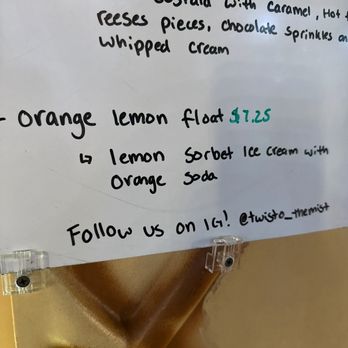 with Caramel, Hot
reeses pieces, chocolate sprinkles an
whipped cream
- Orange lemon float $7.25
↳ lemon Sorbet Ice cream with
Orange Soda
Follow us on IG! @twisto_themist